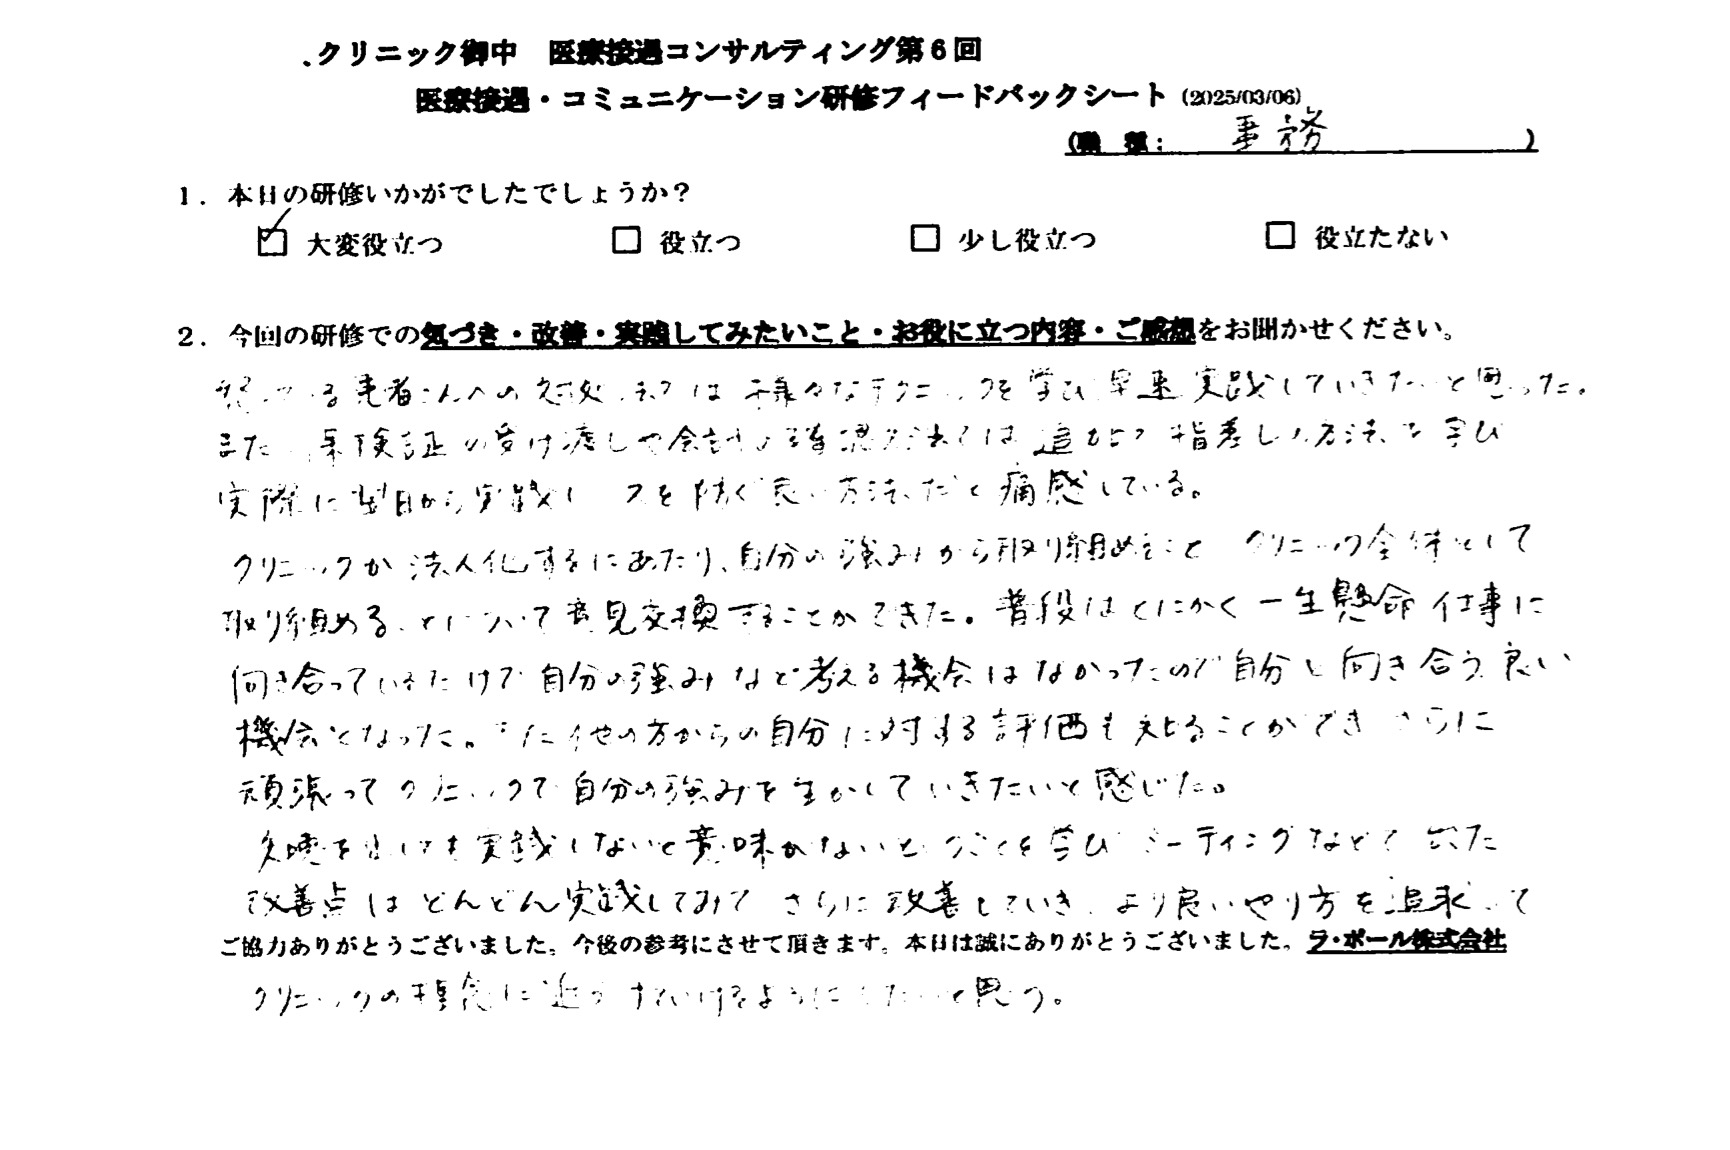 クリニック御中　医療接遇コンサルティング第6回
医療接遇・コミュニケーション研修フィードバックシート（2025/03/06）
（職　種：　事務　）
1．本日の研修いかがでしたでしょうか？
☑ 大変役立つ　□ 役立つ　□ 少し役立つ　□ 役立たない
2．今回の研修での気づき・改善・実践してみたいこと・お役に立つ内容・ご感想をお聞かせください。
怒っている患者さんへの対処 では 様々なテクニックを学び早速実践していきたいと思った。
また 保険証の受け渡しや会計の確認方法では 指差しの方法を学び
実際に翌日から実践し ミスを防ぐ良い方法だと痛感している。
クリニックが法人化するにあたり、自分の強みから取り組めること クリニック全体として
取り組めることについて意見交換することができた。普段はとにかく一生懸命仕事に
向き合っているだけで自分の強みなど考える機会はなかったので自分と向き合う良い
機会となった。また他の方からの自分に対する評価も知ることができ さらに
頑張ってクリニックで自分の強みを生かしていきたいと感じた。
を出しても実践しないと意味がないということを学び ミーティングなどで出た
改善点はどんどん実践してみて さらに改善していき より良いやり方を追求して
ご協力ありがとうございました。今後の参考にさせて頂きます。本日は誠にありがとうございました。ラ・ポール株式会社
クリニックの理念に近づけていけるようにしたいと思う。